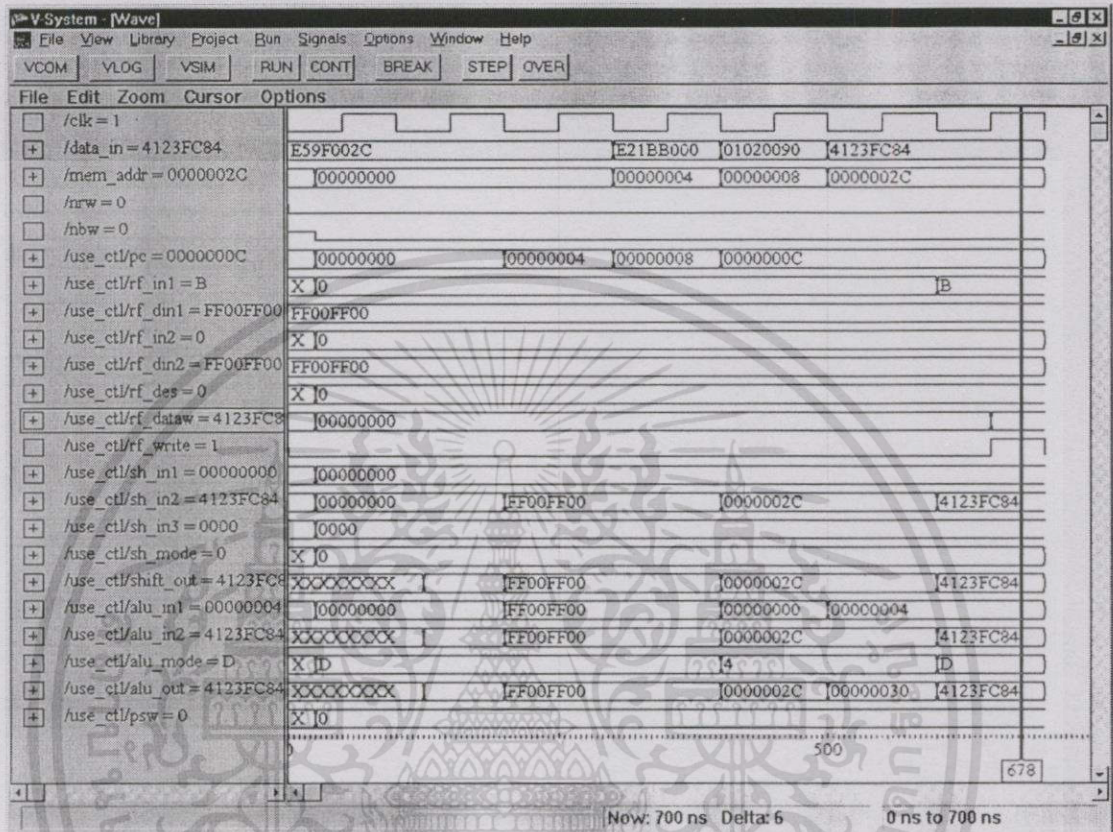 V-System - [Wave]
File View Library Project Run Signals Options Window Help
VCOM VLOG VSIM RUN CONT BREAK STEP OVER
File Edit Zoom Cursor Options
/clk = 1
/data_in = 4123FC84 E59F002C E21BB000 01020090 4123FC84
/mem_addr = 0000002C 00000000 00000004 00000008 0000002C
/nrw = 0
/nbw = 0
/use_ctl/pc = 0000000C 00000000 00000004 00000008 0000000C
/use_ctl/rf_in1 = B X 0 B
/use_ctl/rf_din1 = FF00FF00 FF00FF00
/use_ctl/rf_in2 = 0 X 0
/use_ctl/rf_din2 = FF00FF00 FF00FF00
/use_ctl/rf_des = 0 X 0
/use_ctl/rf_dataw = 4123FC8 00000000
/use_ctl/rf_write = 1
/use_ctl/sh_in1 = 00000000 00000000
/use_ctl/sh_in2 = 4123FC84 00000000 FF00FF00 0000002C 4123FC84
/use_ctl/sh_in3 = 0000 0000
/use_ctl/sh_mode = 0 X 0
/use_ctl/shift_out = 4123FC8 XXXXXXXX FF00FF00 0000002C 4123FC84
/use_ctl/alu_in1 = 00000004 00000000 FF00FF00 00000000 00000004
/use_ctl/alu_in2 = 4123FC84 XXXXXXXX FF00FF00 0000002C 4123FC84
/use_ctl/alu_mode = D X D 4 D
/use_ctl/alu_out = 4123FC84 XXXXXXXX FF00FF00 0000002C 00000030 4123FC84
/use_ctl/psw = 0 X 0
500
678
Now: 700 ns Delta: 6 0 ns to 700 ns